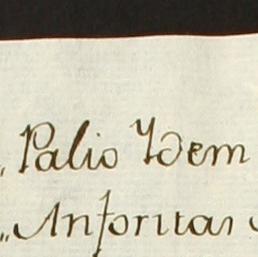 „ Palio Idem
„ Anforitas